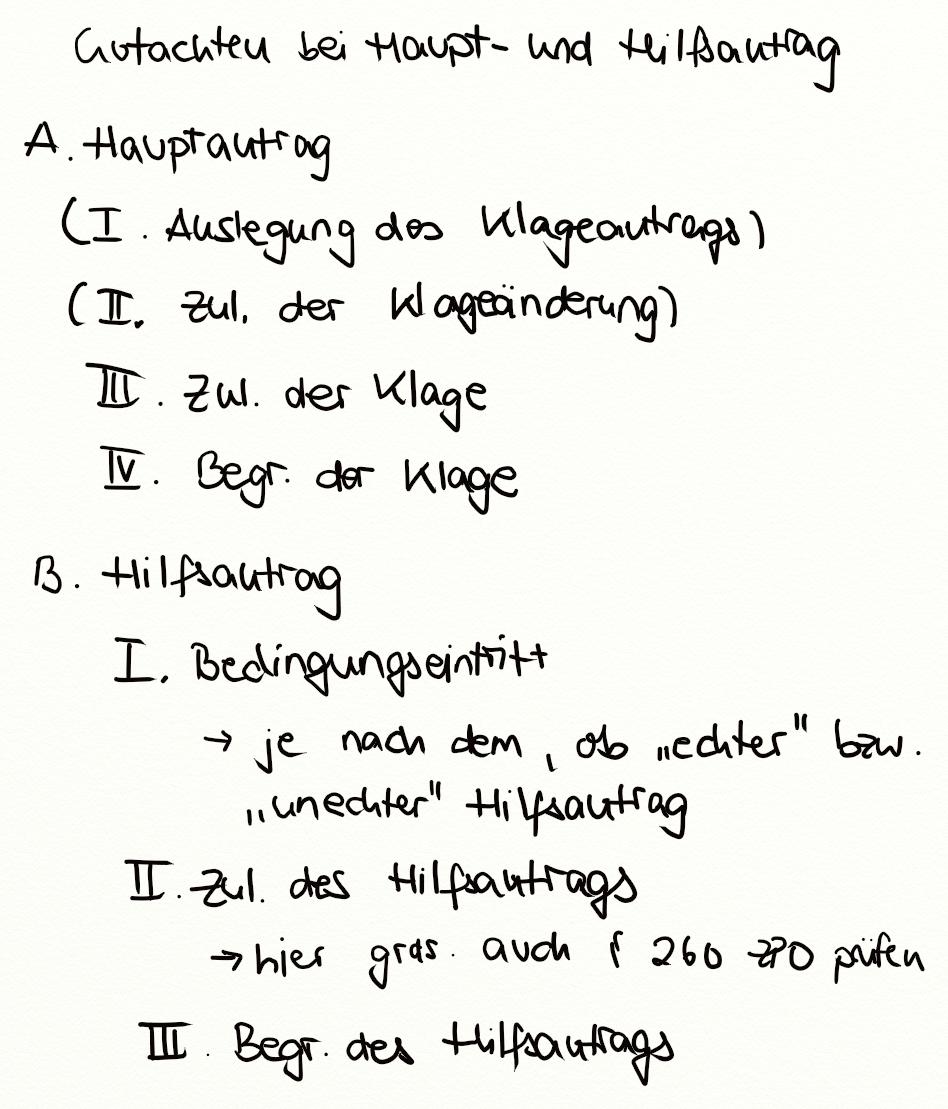 Gutachten bei Haupt- und Hilfsantrag
A. Hauptantrag
(I. Auslegung des Klageantrags)
(II. Zul. der Klageänderung)
III. Zul. der Klage
IV. Begr. der Klage
B. Hilfsantrag
I. Bedingungseintritt
→ je nach dem, ob „echter" bzw.
„unechter" Hilfsantrag
II. Zul. des Hilfsantrags
→ hier grds. auch § 260 ZPO prüfen
III. Begr. des Hilfsantrags